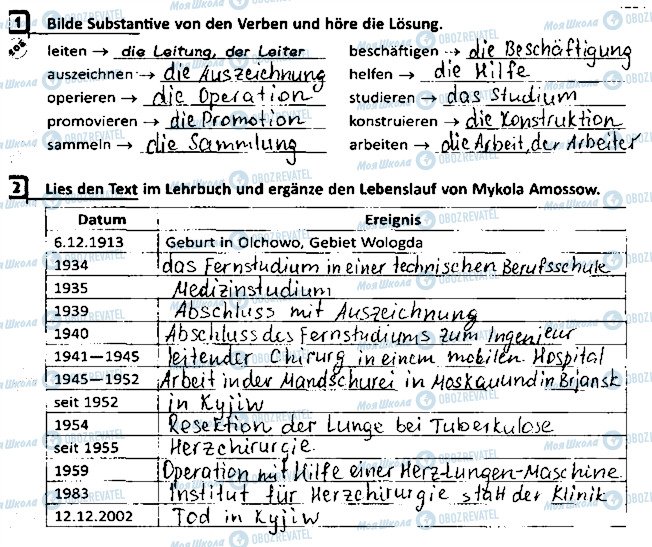 1 Bilde Substantive von den Verben und höre die Lösung.
leiten → die Leitung, der Leiter beschäftigen → die Beschäftigung
auszeichnen → die Auszeichnung helfen → die Hilfe
operieren → die Operation studieren → das Studium
promovieren → die Promotion konstruieren → die Konstruktion
sammeln → die Sammlung arbeiten → die Arbeit, der Arbeiter
2 Lies den Text im Lehrbuch und ergänze den Lebenslauf von Mykola Amossow.
Datum Ereignis
6.12.1913 Geburt in Olchowo, Gebiet Wologda
1934 das Fernstudium in einer technischen Berufsschule
1935 Medizinstudium
1939 Abschluss mit Auszeichnung
1940 Abschluss des Fernstudiums zum Ingenieur
1941—1945 leitender Chirurg in einem mobilen Hospital
1945—1952 Arbeit in der Mandschurei in Moskau und in Brjansk
seit 1952 in Kyjiw
1954 Resektion der Lunge bei Tuberkulose
seit 1955 Herzchirurgie.
1959 Operation mit Hilfe einer Herz-Lungen-Maschine
1983 Institut für Herzchirurgie statt der Klinik
12.12.2002 Tod in Kyjiw